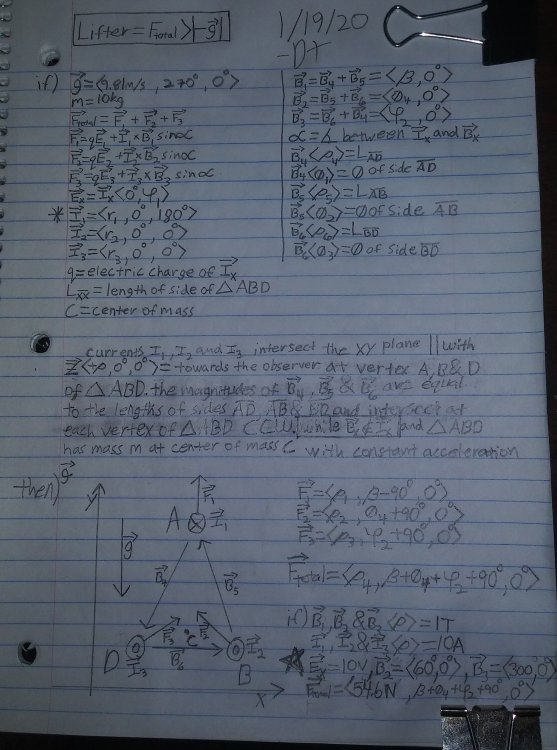 Lifter = F⃗total > |-g⃗|
1/19/20
-DT
if) g⃗ = <9.81m/s, 270°, 0°>
m = 10kg
F⃗total = F⃗1 + F⃗2 + F⃗3
F⃗1 = qE⃗1 + I⃗1 × B⃗1 sinα
F⃗2 = qE⃗2 + I⃗2 × B⃗2 sinα
F⃗3 = qE⃗3 + I⃗3 × B⃗3 sinα
E⃗x = I⃗x <0°, φ1>
* I⃗1 = <r1, 0°, 180°>
I⃗2 = <r2, 0°, 0°>
I⃗3 = <r3, 0°, 0°>
q = electric charge of I⃗x
Lxx = length of side of △ABD
C = center of mass
B⃗1 = B⃗4 + B⃗5 = <β, 0°>
B⃗2 = B⃗5 + B⃗6 = <∅4, 0°>
B⃗3 = B⃗6 + B⃗4 = <φ2, 0°>
α = ∡ between I⃗x and B⃗x
B⃗4 <ρ4> = LAD
B⃗4 <∅1> = ∅ of side AD
B⃗5 <ρ5> = LAB
B⃗5 <∅2> = ∅ of side AB
B⃗6 <ρ6> = LBD
B⃗6 <∅3> = ∅ of side BD
currents I⃗1, I⃗2 and I⃗3 intersect the XY plane || with
Z⃗ <+ρ, 0°, 0°> = towards the observer at vertex A, B & D
of △ABD. the magnitudes of B⃗4, B⃗5 & B⃗6 are equal
to the lengths of sides AD, AB & BD and intersect at
each vertex of △ABD CCW, while and △ABD
has mass m at center of mass C with constant acceleration
g⃗
then)
Y
F⃗1
A I⃗1
g⃗
B⃗4
B⃗5
F⃗3
C
F⃗2
D
I⃗3
B⃗6
I⃗2
B
X
F⃗1 = <ρ1, β-90°, 0°>
F⃗2 = <ρ2, ∅4+90°, 0°>
F⃗3 = <ρ3, φ2+90°, 0°>
F⃗total = <ρ4, β+∅4+φ2+90°, 0°>
if) B⃗1, B⃗2 & B⃗3 <ρ> = 1T
I⃗1, I⃗2 & I⃗3 <ρ> = 10A
E⃗x = 10V, B⃗2 = <60°, 0°>, B⃗3 = <300°, 0°>
F⃗total = <546N, β+∅4+φ2+90°, 0°>